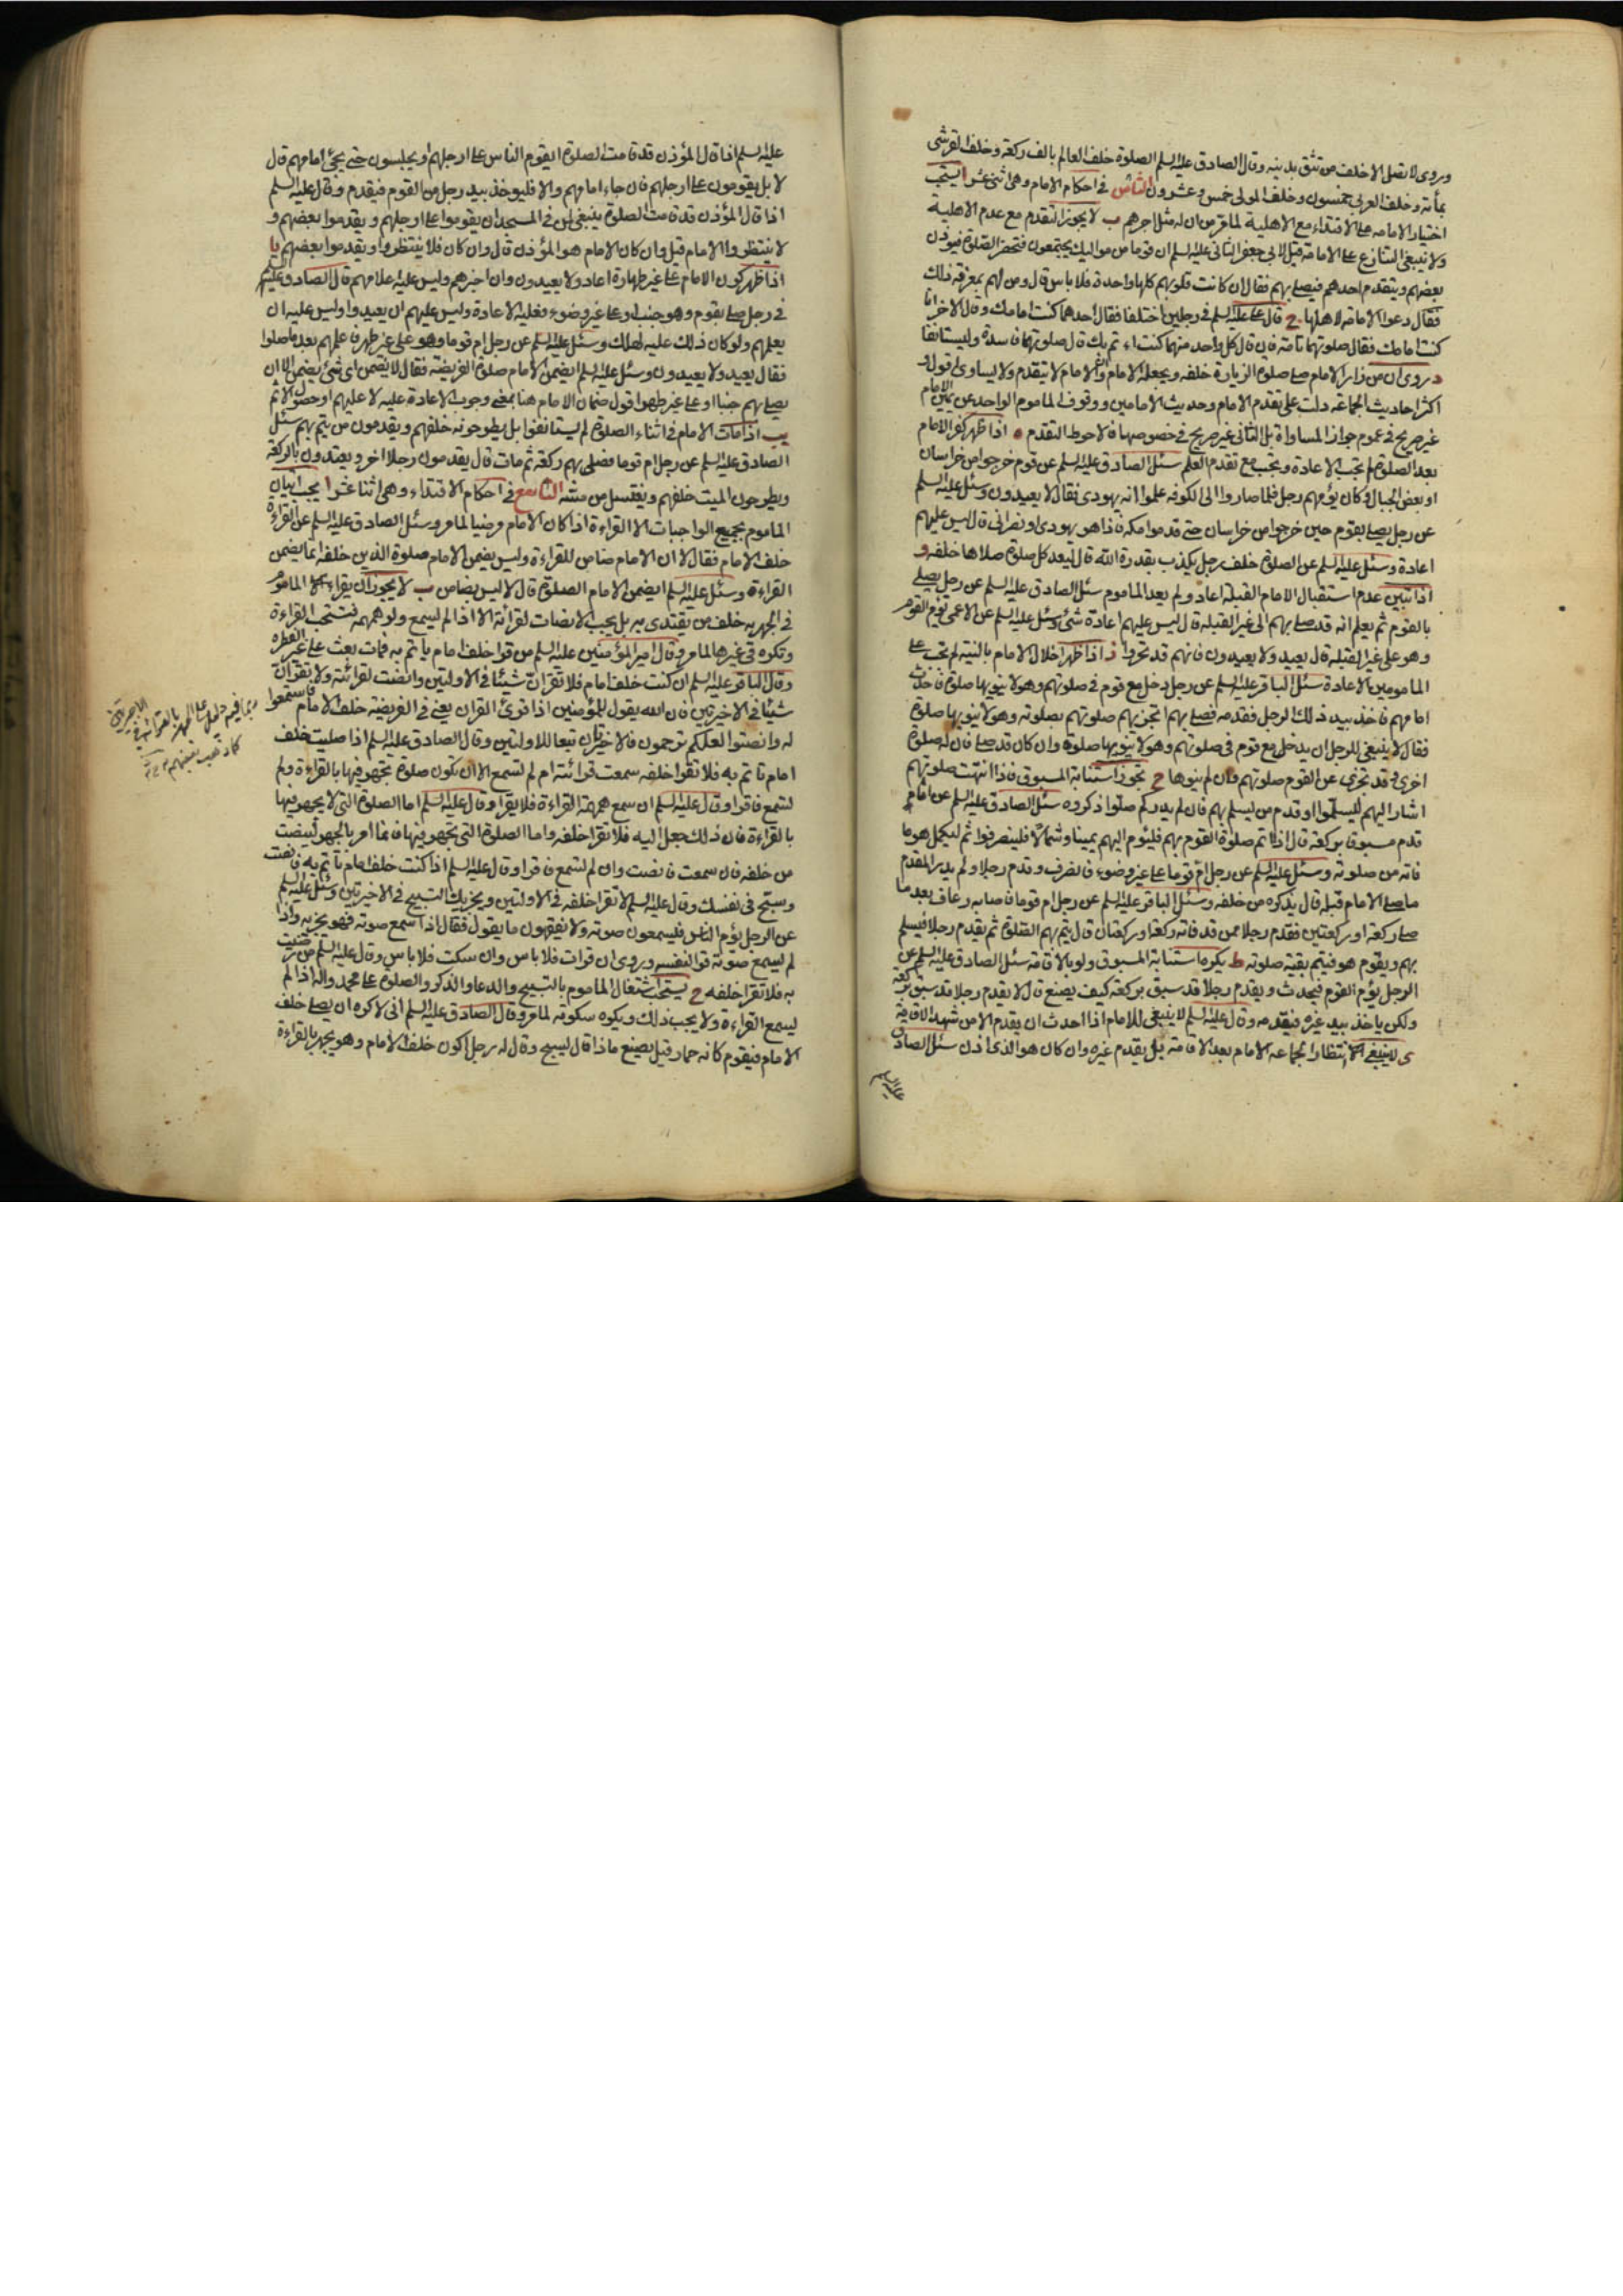 وروى لا تصل الا خلف من تثق بدينه وقال الصادق عليه السلم الصلوة خلف العالم بالف ركعة وخلف القرشى
بمأة وخلف العربى خمسون وخلف المولى خمس وعشرون الثامن فى احكام الامام وهى اثنى عشر ا يستحب
اختيار الامامه على الاقتداء مع الاهلية لما مر من ان له مثل اجرهم ب لا يجوز التقدم مع عدم الاهليه
ولا ينبغى التنازع على الامامة قيل لابى جعفر الثانى عليه السلم ان قوما من مواليك يجتمعون فتحضر الصلوة فيؤذن
بعضهم ويتقدم احدهم فيصلى بهم فقال ان كانت قلوبهم كلها واحدة فلا باس قال ومن لهم بمعرفة ذلك
فقال دعوا الامامة لاهلها ج قال على عليه السلم فى رجلين اختلفا فقال احدهما كنت امامك وقال الاخر انا
كنت امامك فقال صلوتهما تامة فان قال كل واحد منهما كنت ائتم بك قال صلوتهما فاسدة وليستانفا
د روى ان من زار الامام صلى صلوة الزيارة خلفه ويجعله الامام وان الامام لا يتقدم ولا يساوى اقول و
اكثر احاديث الجماعة دلت على تقدم الامام وحديث الامامين ووقوف الماموم الواحد عن يمين الامام
غير صريح فى عموم جواز المساواة بل الثانى غير صريح فى خصوصها فالاحوط التقدم ه اذا ظهر كفر الامام
بعد الصلوة لم تجب الاعادة وتجب مع تقدم العلم سئل الصادق عليه السلم عن قوم خرجوا من خراسان
او بعض الجبال وكان يؤمهم رجل فلما صاروا الى الكوفه علموا انه يهودى فقال لا يعيدون وسئل عليه السلم
عن رجل يصلى بقوم حين خرجوا من خراسان حتى قدموا مكة فاذا هو يهودى او نصرانى قال ليس عليهم
اعادة وسئل عليه السلم عن الصلوة خلف رجل يكذب بقدرة الله قال ليعد كل صلوة صلاها خلفه و
اذا تبين عدم استقبال الامام القبلة اعاد ولم يعد الماموم سئل الصادق عليه السلم عن رجل يصلى
بالقوم ثم يعلم انه قد صلى بهم الى غير القبله قال ليس عليهم اعادة شئ وسئل عليه السلم عن الاعمى يؤم القوم
وهو على غير القبلة قال يعيد ولا يعيدون فانهم قد تحروا ز اذا ظهر اخلال الامام بالنية لم تجب على
المامومين الاعادة سئل الباقر عليه السلم عن رجل دخل مع قوم فى صلوتهم وهو لا ينويها صلوة فاحدث
امامهم فاخذ بيد ذلك الرجل فقدمه فصلى بهم اتجزيهم صلوتهم بصلوته وهو لا ينويها صلوة
فقال لا ينبغى للرجل ان يدخل مع قوم فى صلوتهم وهو لا ينويها صلوة وان كان قد صلى فان له صلوة
اخرى وقد تجزى عن القوم صلوتهم وان لم ينوها ح تجوز استنابة المسبوق فاذا انتهت صلوتهم
اشار اليهم ليسلموا او قدم من يسلم بهم فان لم يدر كم صلوا ذكروه سئل الصادق عليه السلم عن امام
قدم مسبوقا بركعة قال اذا اتم صلوة القوم بهم فليؤم اليهم يمينا وشمالا فلينصرفوا ثم ليكمل هو ما
فاته من صلوته وسئل عليه السلم عن رجل ام قوما على غير وضوء فانصرف وقدم رجلا ولم يدر المقدم
ما صلى الامام قبله قال يذكره من خلفه وسئل الباقر عليه السلم عن رجل ام قوما فاصابه رعاف بعد ما
صلى ركعة او ركعتين فقدم رجلا ممن قد فاته ركعة او ركعتان قال يتم بهم الصلوة ثم يقدم رجلا فيسلم
بهم ويقوم هو فيتم بقية صلوته ط يكره استنابة المسبوق ولو بالاقامة سئل الصادق عليه السلم عن
الرجل يؤم القوم فيحدث ويقدم رجلا قد سبق بركعة كيف يصنع قال لا يقدم رجلا قد سبق بركعة
ولكن ياخذ بيد غيره فيقدمه وقال عليه السلم لا ينبغى للامام اذا احدث ان يقدم الا من شهد الاقامة
ى لا ينبغى انتظار الجماعه الامام بعد الاقامة بل يقدم غيره وان كان هو الذى اذن سئل الصادق
عليه السلم
عليه السلم اذا قال المؤذن قد قامت الصلوة ايقوم الناس على ارجلهم او يجلسون حتى يجئ امامهم قال
لا بل يقومون على ارجلهم فان جاء امامهم والا فليؤخذ بيد رجل من القوم فيقدم وقال عليه السلم
اذا قال المؤذن قد قامت الصلوة ينبغى لمن فى المسجد ان يقوموا على ارجلهم ويقدموا بعضهم و
لا ينتظروا الامام قيل وان كان الامام هو المؤذن قال وان كان فلا ينتظروا ويقدموا بعضهم يا
اذا ظهر كون الامام على غير طهارة اعاد ولا يعيدون وان اخبرهم وليس عليه اعلامهم قال الصادق عليه السلم
فى رجل صلى بقوم وهو جنب او على غير وضوء فعليه الاعادة وليس عليهم ان يعيدوا وليس عليه ان
يعلمهم ولو كان ذلك عليه لهلك وسئل عليه السلم عن رجل ام قوما وهو على غير طهر فاعلمهم بعد ما صلوا
فقال يعيد ولا يعيدون وسئل عليه السلم ايضمن الامام صلوة الفريضة فقال لا يضمن اى شئ يضمن الا ان
يصلى بهم جنبا او على غير طهر اقول ضمان الامام هنا بمعنى وجوب الاعادة عليه لا عليهم او حصول الاثم
يب اذا مات الامام فى اثناء الصلوة لم يستانفوا بل يطرحونه خلفهم ويقدمون من يتم بهم سئل
الصادق عليه السلم عن رجل ام قوما فصلى بهم ركعة ثم مات قال يقدمون رجلا اخر ويعتدون بالركعة
ويطرحون الميت خلفهم ويغتسل من مسه التاسع فى احكام الاقتداء وهى اثنا عشر ا يجب اتيان
الماموم بجميع الواجبات الا القراءة اذا كان الامام مرضيا لما مر وسئل الصادق عليه السلم عن القراءة
خلف الامام فقال لا ان الامام ضامن للقراءة وليس يضمن الامام صلوة الذين خلفه انما يضمن
القراءة وسئل عليه السلم ايضمن الامام الصلوة قال لا ليس بضامن ب لا يجوز ان يقراء الماموم
فى الجهريه خلف من يقتدى به بل يجب الانصات لقرائته الا اذا لم يسمع ولو همهمة فتستحب القراءة
وتكره فى غيرها لما مر وقال امير المؤمنين عليه السلم من قرا خلف امام ياتم به فمات بعث على غير الفطرة
وقال الباقر عليه السلم ان كنت خلف امام فلا تقران شيئا فى الاولتين وانصت لقرائته ولا تقران
شيئا فى الاخيرتين فان الله يقول للمؤمنين اذا قرئ القران يعنى فى الفريضة خلف الامام فاستمعوا
له وانصتوا لعلكم ترحمون فالاخيرتان تبعا للاولتين وقال الصادق عليه السلم اذا صليت خلف
امام تاتم به فلا تقرا خلفه سمعت قرائته ام لم تسمع الا ان تكون صلوة تجهر فيها بالقراءة ولم
تسمع فاقرا وقال عليه السلم ان سمع همهمة القراءة فلا يقرا وقال عليه السلم اما الصلوة التى لا يجهر فيها
بالقراءة فان ذلك جعل اليه فلا تقرا خلفه واما الصلوة التى تجهر فيها فانما امر بالجهر لينصت
من خلفه فان سمعت فانصت وان لم تسمع فاقرا وقال عليه السلم اذا كنت خلف امام تاتم به فانصت
وسبح فى نفسك وقال عليه السلم لا تقرا خلفه فى الاولتين ويجزيك التسبيح فى الاخيرتين وسئل عليه السلم
عن الرجل يؤم الناس فيسمعون صوته ولا يفقهون ما يقول فقال اذا سمع صوته فهو يجزيه واذا
لم يسمع صوته قرا لنفسه وروى ان قرات فلا باس وان سكت فلا باس وقال عليه السلم من رضيت
به فلا تقرا خلفه ج يستحب اشتغال الماموم بالتسبيح والدعا والذكر والصلوة على محمد واله اذا لم
يسمع القراءة ولا يجب ذلك ويكره سكوته لما مر وقال الصادق عليه السلم انى لاكره ان يصلى خلف
الامام فيقوم كانه حمار قيل يصنع ماذا قال يسبح وقال له رجل اكون خلف الامام وهو يجهر بالقراءة